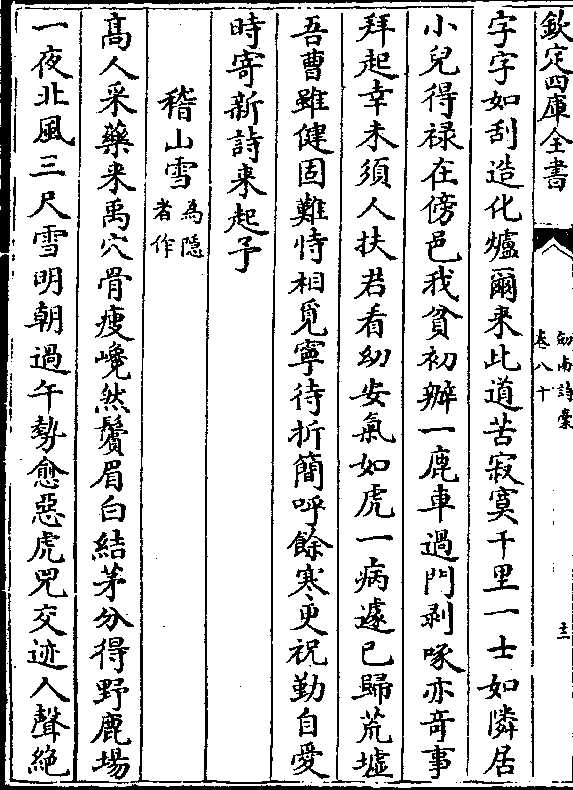 欽定四庫全書
劍南詩稾
卷八十
十三
字字如刮造化爐爾来此道苦寂寞千里一士如隣居
小兒得禄在傍邑我貧初辦一鹿車過門剥啄亦竒事
拜起幸未須人扶君看幼安氣如虎一病遽已歸荒墟
吾曹雖健固難恃相覓寧待折簡呼餘寒更祝勤自愛
時寄新詩来起予
稽山雪為隠者作
髙人采藥来禹穴骨瘦巉然鬢眉白結茅分得野鹿場
一夜北風三尺雪明朝過午勢愈惡虎兕交迹人聲絶